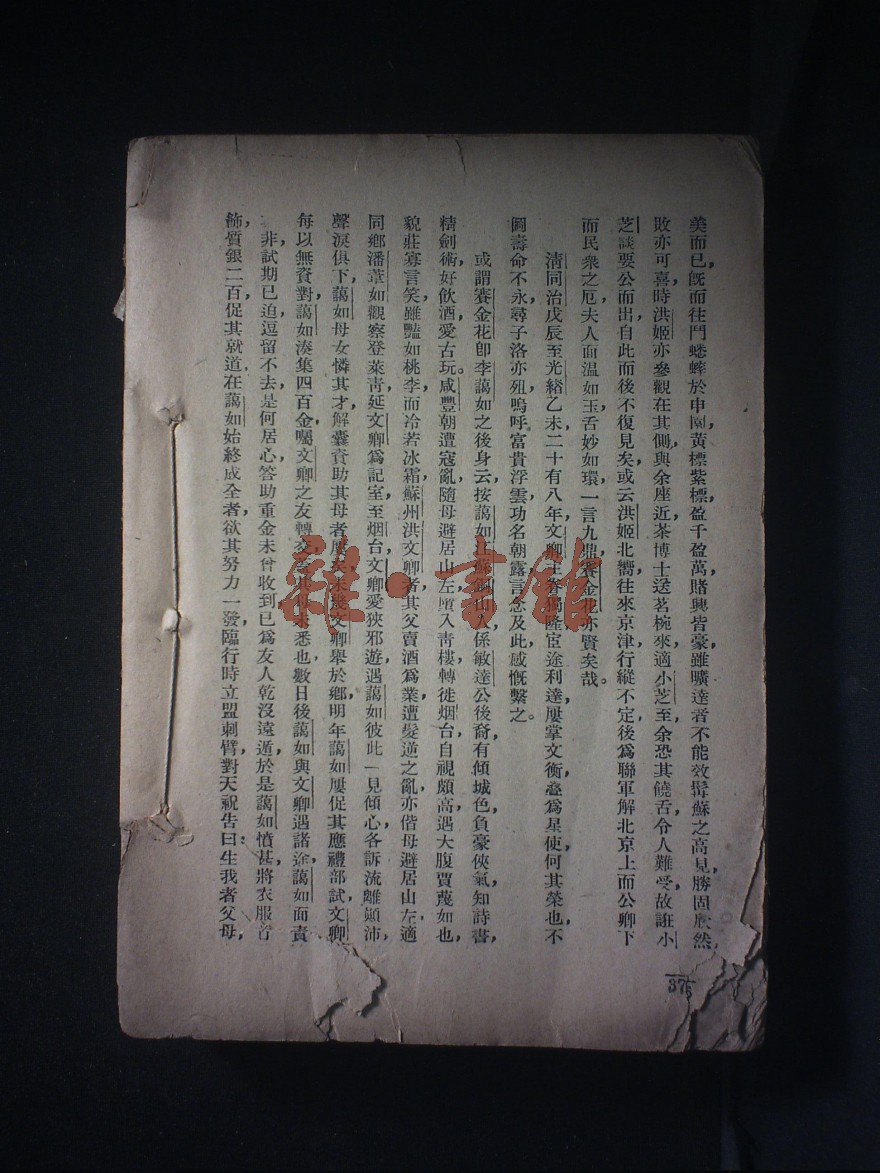 美而已,旣而往鬥蟋蟀於申園,黃標紫標,盈千盈萬,賭興皆豪,雖曠達者不能效髯蘇之高見,勝固欣然,
敗亦可喜,時洪姬亦參觀在其側,與余座近,茶博士送茗椀來,適小芝至,余恐其饒舌,令人難受,故誑小
芝談要公而出,自此而後不復見矣,或云洪姬北嚮,往來京津,行縱不定,後爲聯軍解北京上而公卿下
而民衆之厄,夫人面温如玉,舌妙如環,一言九鼎,賽金花亦賢矣哉。
淸同治戊辰至光緖乙未二十有八年,文卿主眷獨隆,宦途利達,屢掌文衡,臺爲星使,何其榮也,不
圖壽命不永,尋子洛亦殂,嗚呼,富貴浮雲,功名朝露,言念及此,感慨繫之。
或謂賽金花卽李藹如之後身云,按藹如江蘇銅山人,係敏達公後裔,有傾城色,負豪俠氣,知詩書,
精劍術,好飲酒,愛古玩。咸豐朝遭寇亂,隨母避居山左,鬻入靑樓,轉徙烟台,自視頗高,遇大腹賈蔑如也,
貌莊寡言笑,雖豔如桃李,而冷若冰霜,蘇州洪文卿者,其父賣酒爲業,遭髮逆之亂,亦偕母避居山左,適
同鄕潘葦如觀察登萊靑,延文卿爲記室,至烟台,文卿愛狹邪遊,遇藹如彼此一見傾心,各訴流離顚沛,
聲淚俱下,藹如母女憐其才,解囊資助其母者屢矣,未幾文卿舉於鄕,明年藹如屢促其應禮部試,文卿
每以無資對,藹如湊集四百金,囑文卿之友轉交,其母未悉也,數日後藹如與文卿遇諸途,藹如面責
非,試期已迫,逗留不去,是何居心,答助重金未曾收到,已爲友人乾沒遠遁,於是藹如憤甚,將衣服首
飾,質銀二百,促其就道,在藹如始終成全者,欲其努力一發,臨行時立盟刺臂,對天祝告曰:生我者父母,
37
雜·書館